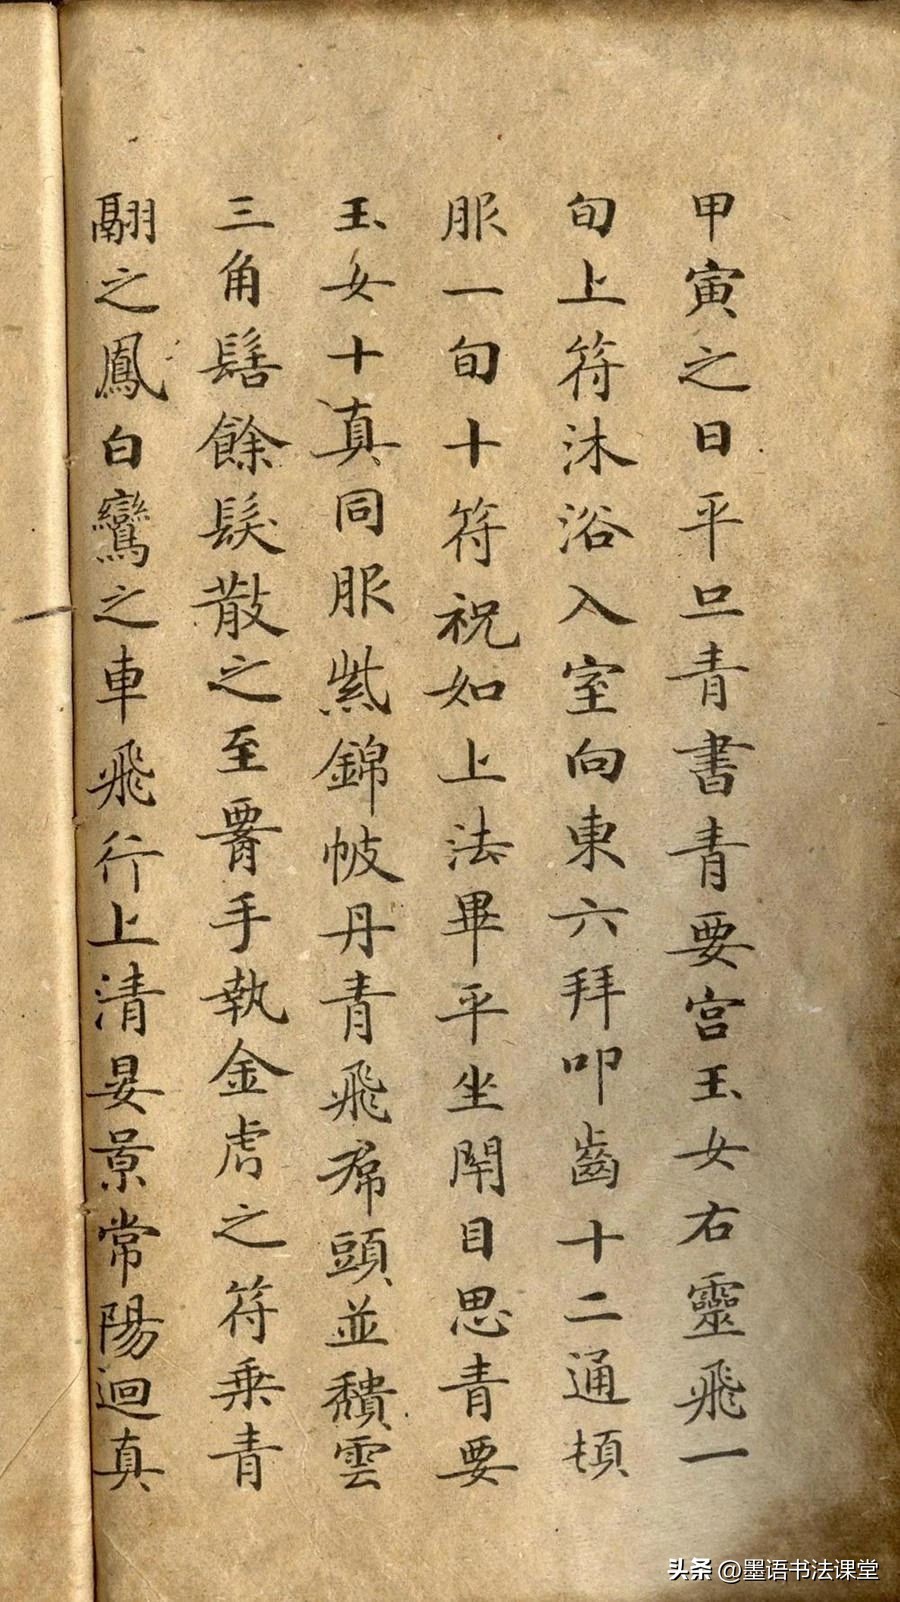 甲寅之日平旦青書青要宮玉女右靈飛一
旬上符沐浴入室向東六拜叩齒十二通頓
服一旬十符祝如上法畢平坐閉目思青要
玉女十真同服紫錦帔丹青飛帬頭並穨雲
三角髻餘髮散之至䙅手執金虎之符乘青
翮之鳳白鸞之車飛行上清晏景常陽迴真
头条 @墨语书法课堂